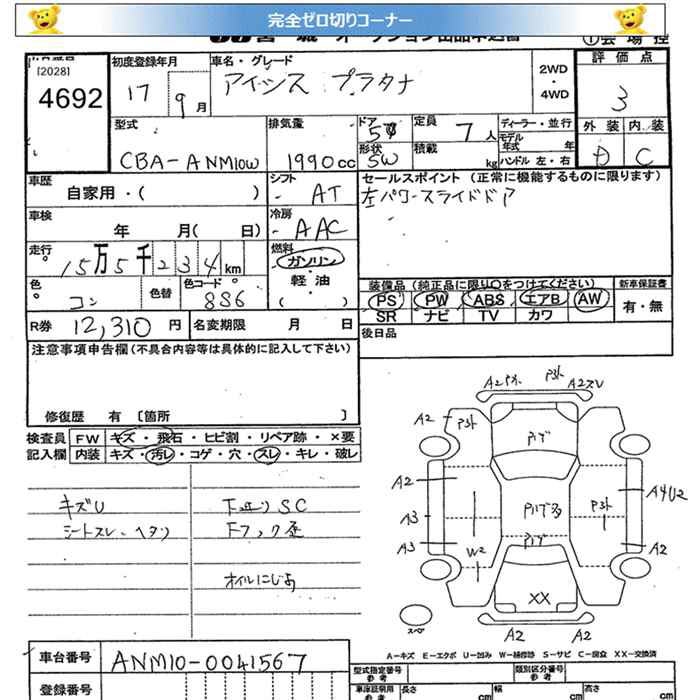 完全ゼロ切りコーナー
[2028]
4692
初度登録年月
17 9月
車名・グレード
アイシス プラタナ
2WD
・
4WD
評価点
3
外装 内装
D C
型式
CBA-ANM10W
排気量
1990cc
ドア
5
形状
SW
定員
7人
積載
kg
ディーラー・並行
モデル年式 年
ハンドル 左・右
車歴
自家用・( )
シフト
AT
車検
年 月( 日)
冷房
AAC
走行
15万5千234km
燃料
ガソリン
・
軽油
( )
色
コン
色替
色コード
8S6
R券 12,310円
名変期限 月 日
セールスポイント(正常に機能するものに限ります)
左パワースライドドア
装備品(純正品に限り○をつけてください)
PS PW ABS エアB AW
SR ナビ TV カワ
新車保証書
有・無
後日品
注意事項申告欄(不具合内容等は具体的に記入して下さい)
修復歴 有 [箇所 ]
検査員記入欄
FW キズ・飛石・ヒビ割・リペア跡・×要
内装 キズ・汚レ・コゲ・穴・スレ・キレ・破レ
キズU
シートスレ・ヘタリ
SC
Fフック歪
オイルにじみ
A2 P外 A2スU
A2 P外
A2
A3
A3
W2
P外
A4U2
A2
XX
A2 A2
スペア
A-キズ E-エクボ U-凹み W-補修跡 S-サビ C-腐食 XX-交換済
車台番号
ANM10-0041567
登録番号
型式指定番号 参考
類別区分番号 参考
車庫証明用 参考
長さ cm
幅 cm
高さ cm